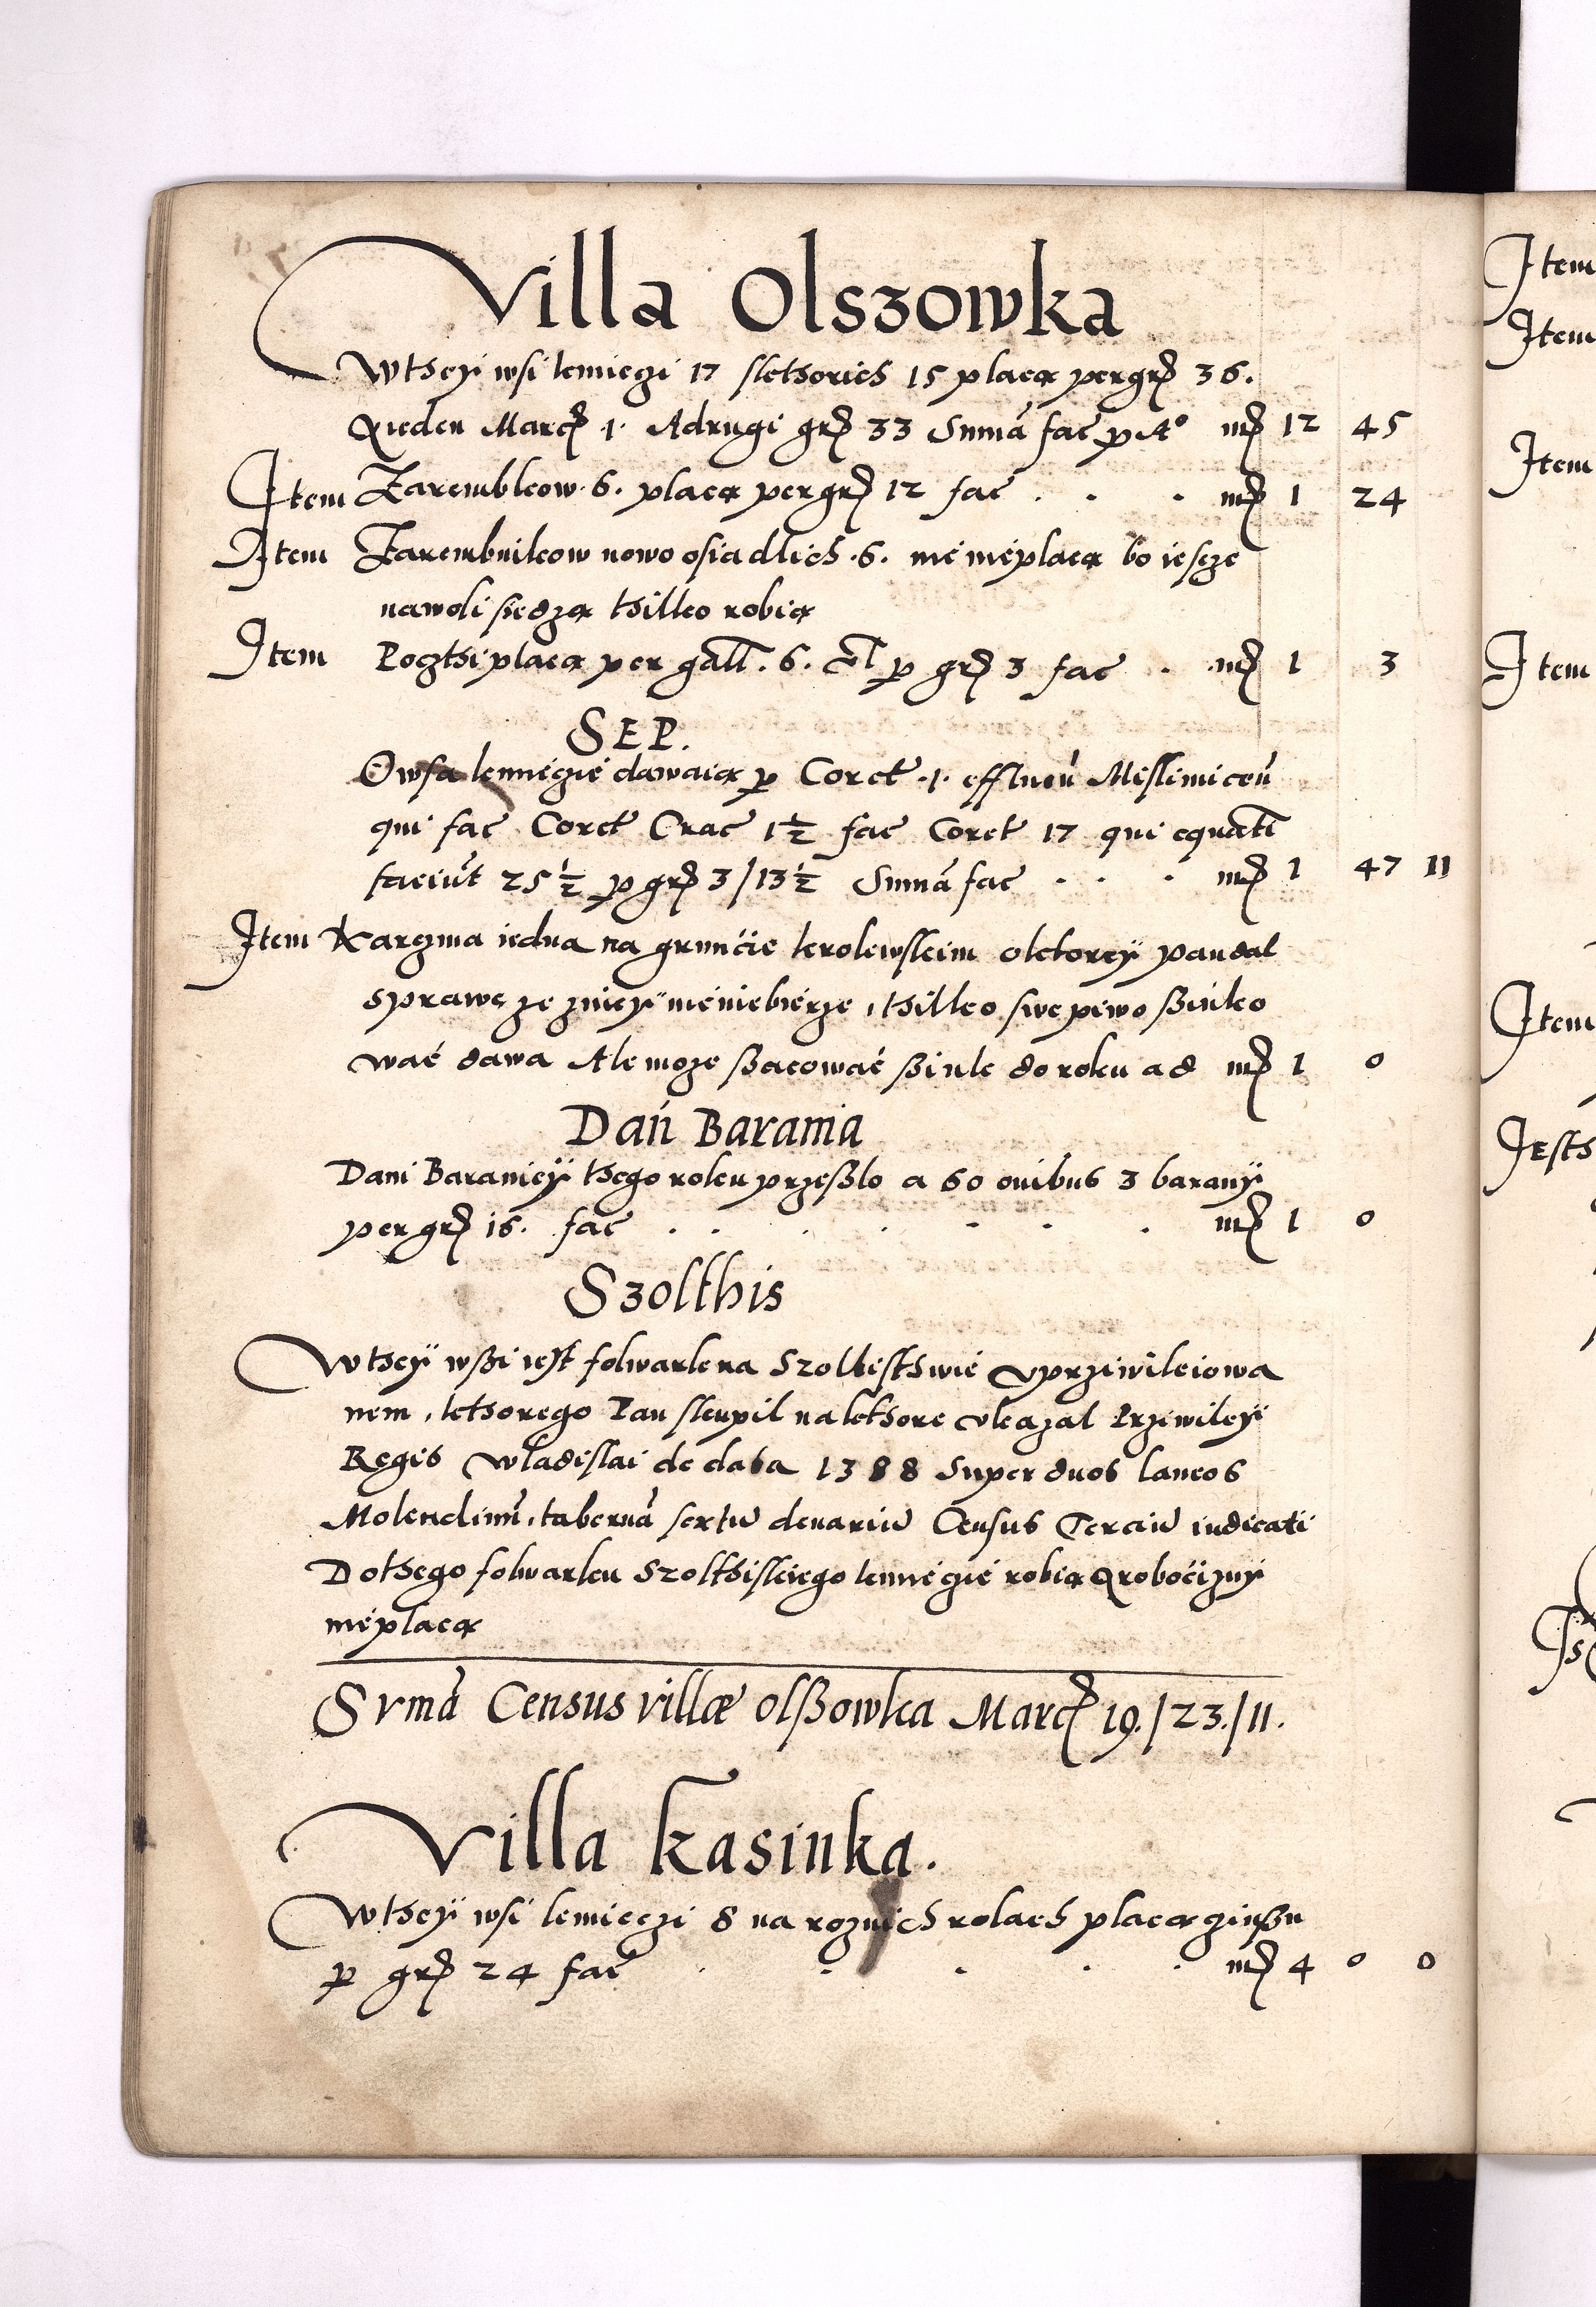 Villa Olszowka
Wthey wsi kmieczi 17 skthorich 15 placą per grz 36.
A ieden Marcz 1. A drugi grz 33 Sumā fac p 4º mz 12 45
Item Zarembkow. 6. placą per grz 12 fac . . . mz 1 24
Item Zarembnikow nowo osiadlich .6. nié niéplacą bo iescze
nawoli siedzą thilko robią
Item Poczthi placą per gall. 6. vl p grz 3 fac . mz 1 3
SEP.
Owsa kmiéczié dawaią p Coret .1. Mislimiceū
qui fac Coret Crac 1½ fac Coret 17 qui equati
faciūt 25½ p grz 3/13½ Sumā fac . . . mz 1 47 11
Item Karczma iedna na grunćie krolewskim oktorey pan dal
sprawę ze zniey niéniebiérze, thilko swe piwo ßinko
wać dawa Ale moze ßacować ßink do roku ad mz 1 0
Dań Barania
Dani Baraniey thego roku przeßlo a 60 ovibus 3 barany
per grz 16. fac . . . . . . . mz 1 0
Szolthis
Wthey wßi iest folwark na Szolthisthwié vprziwileiowa
nem, kthorego Pan skupil na kthore vkazal Prziwiley
Regis Wladislai de data 1388 Super duos laneos
Molendinū, tabernā sextū denariū Census Terciū iudicati
Dothego folwarku Szolthiskiego kmiéczié robią A roboćizny
niéplacą
Svmā Census villæ olßowka Marcz 19./23./11.
Villa Kasinka.
Wthey wsi kmieczi 8 na roznich rolach placą czinßu
p grz 24 fac . . . . . mz 4 0 0
Item
Item
Item
Item
Item
Jesth